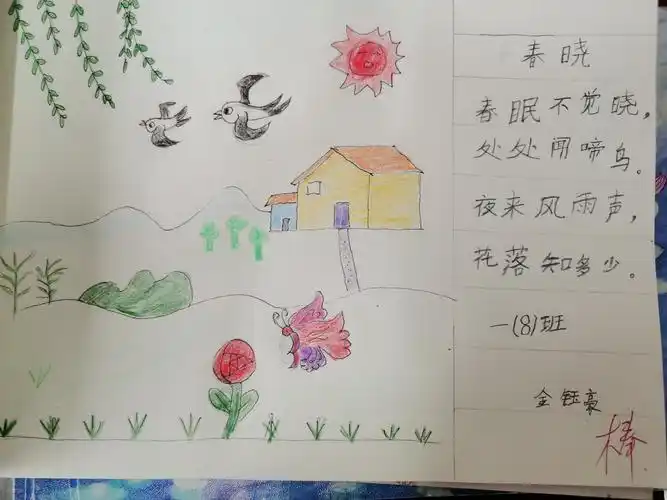 春晓
春眠不觉晓，
处处闻啼鸟。
夜来风雨声，
花落知多少。
一(8)班
金钰豪
棒